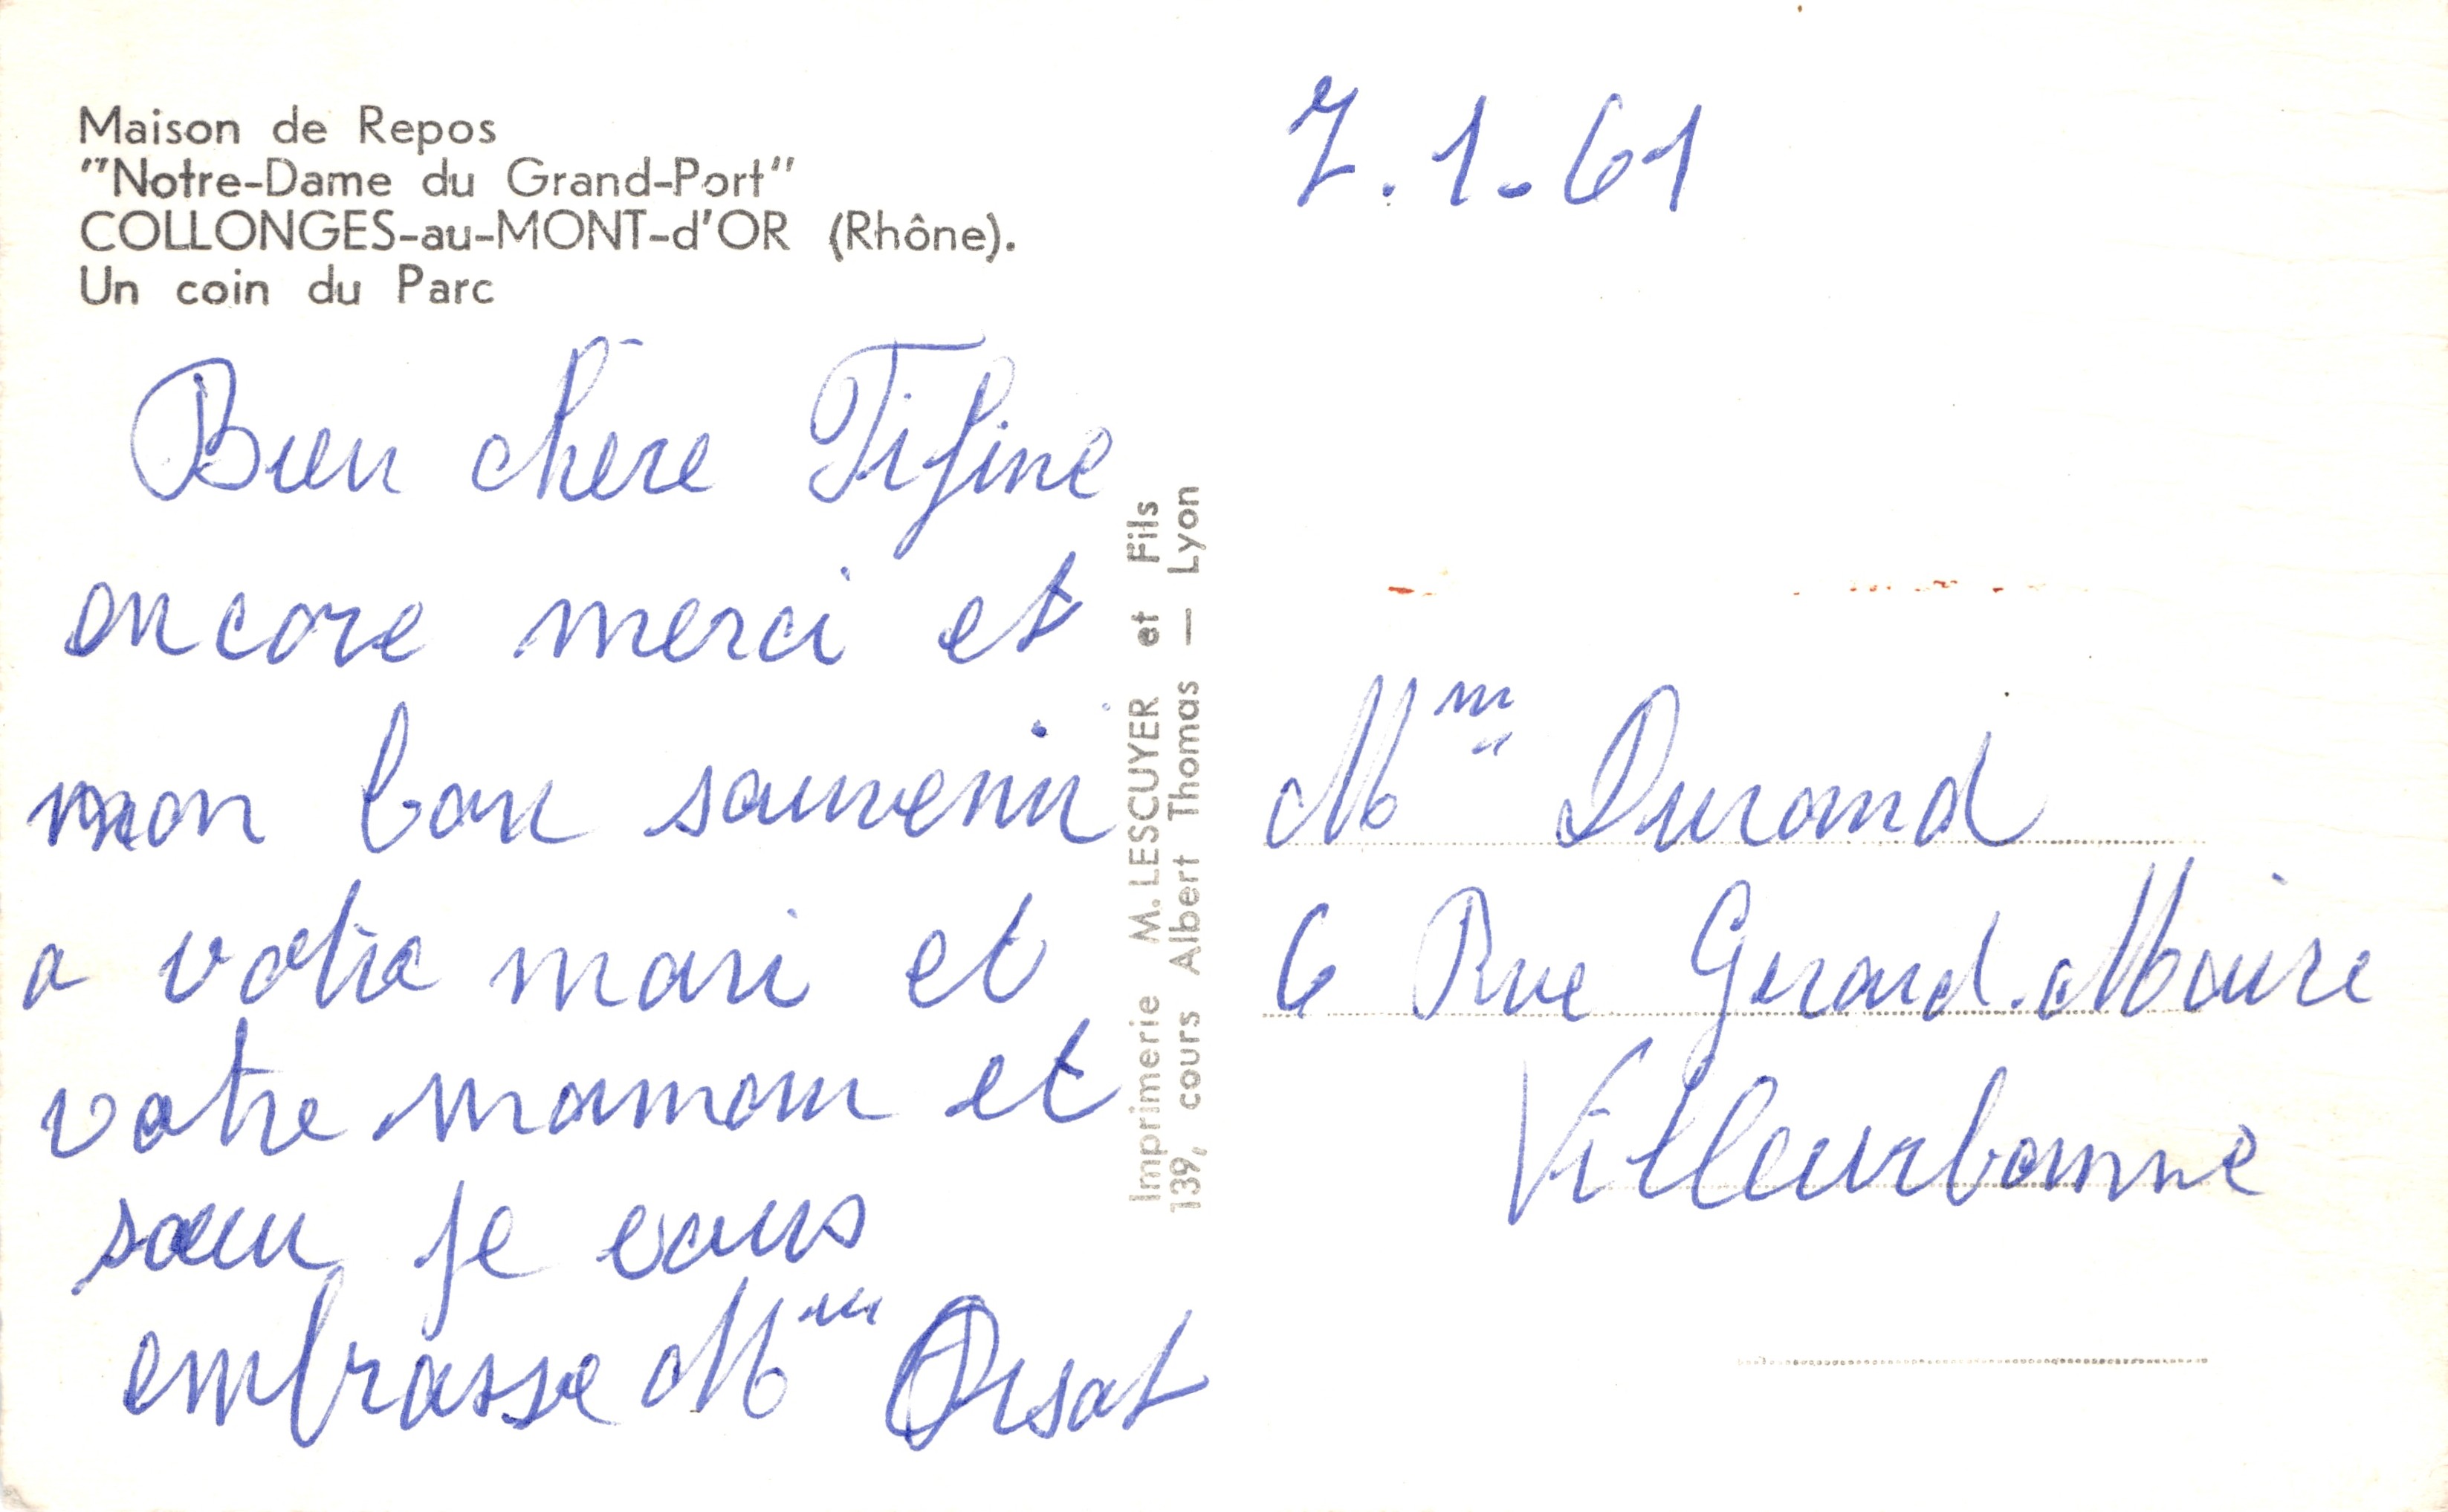 Maison de Repos
"Notre-Dame du Grand-Port"
COLLONGES-au-MONT-d'OR (Rhône).
Un coin du Parc
Bien chère Fifine
encore merci et
mon bon souvenir
a votre mari et
votre maman et
sœur je vous
embrasse Mme Orsat
Imprimerie M. LESCUYER et Fils
139, cours Albert Thomas — Lyon
7.1.61
Mme Durand
6 Rue Gerard. Maire
Villeurbanne